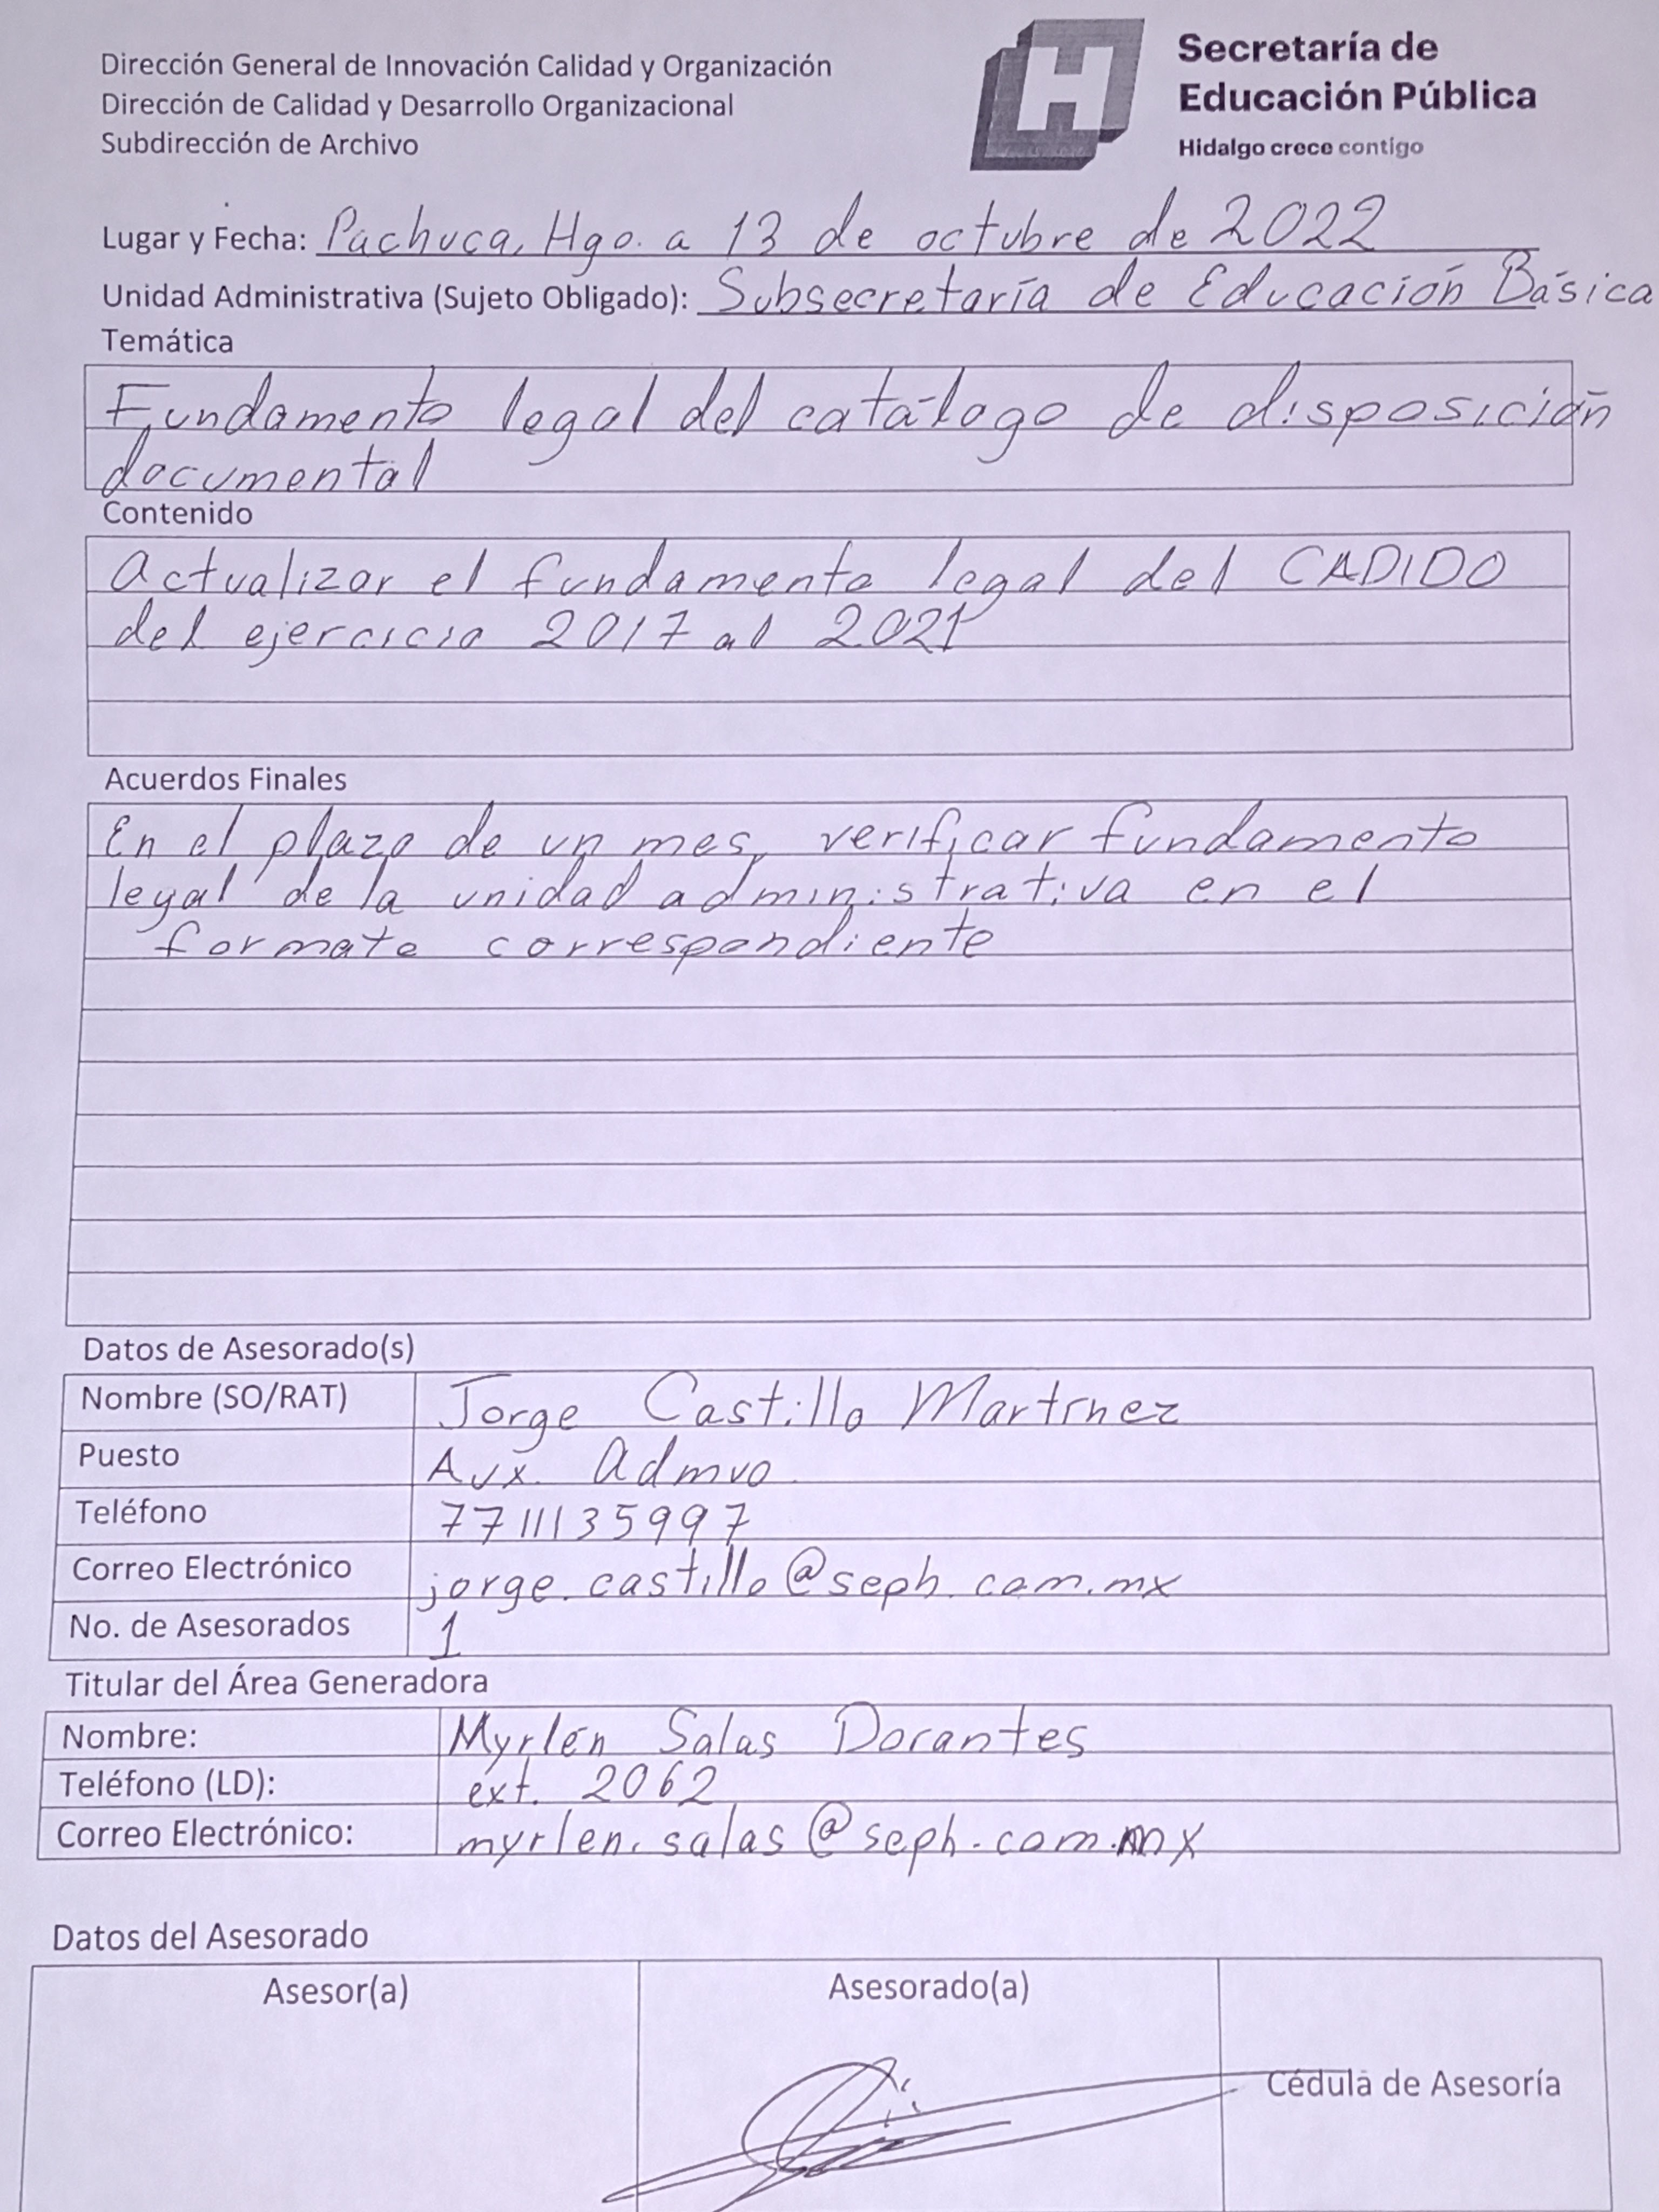 Dirección General de Innovación Calidad y Organización
Dirección de Calidad y Desarrollo Organizacional
Subdirección de Archivo
Secretaría de
Educación Pública
Hidalgo crece contigo
Lugar y Fecha: Pachuca, Hgo. a 13 de octubre de 2022
Unidad Administrativa (Sujeto Obligado): Subsecretaría de Educación Básica
Temática
Fundamento legal del catálogo de disposición
documental
Contenido
Actualizar el fundamento legal del CADIDO
del ejercicio 2017 al 2021
Acuerdos Finales
En el plazo de un mes, verificar fundamento
legal de la unidad administrativa en el
formato correspondiente
Datos de Asesorado(s)
Nombre (SO/RAT) Jorge Castillo Martínez
Puesto Aux. Admvo.
Teléfono 7711135997
Correo Electrónico jorge.castillo@seph.com.mx
No. de Asesorados 1
Titular del Área Generadora
Nombre: Myrlén Salas Dorantes
Teléfono (LD): ext. 2062
Correo Electrónico: myrlen.salas@seph.com.mx
Datos del Asesorado
Asesor(a) Asesorado(a)
Cédula de Asesoría